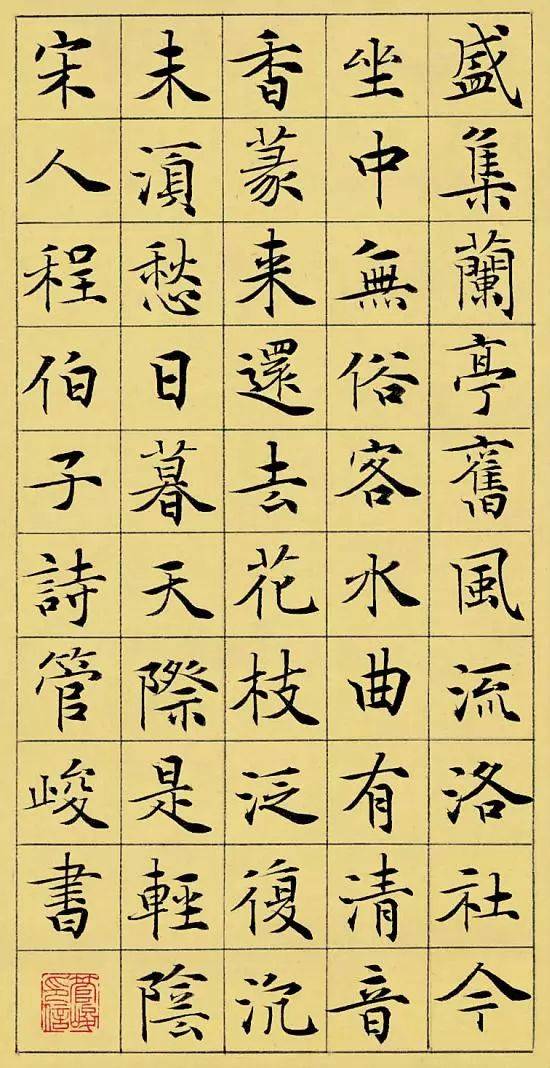 盛集蘭亭舊風流洛社今
坐中無俗客水曲有清音
香篆來還去花枝泛復沉
未湏愁日暮天際是輕陰
宋人程伯子詩管峻書
管峻印信